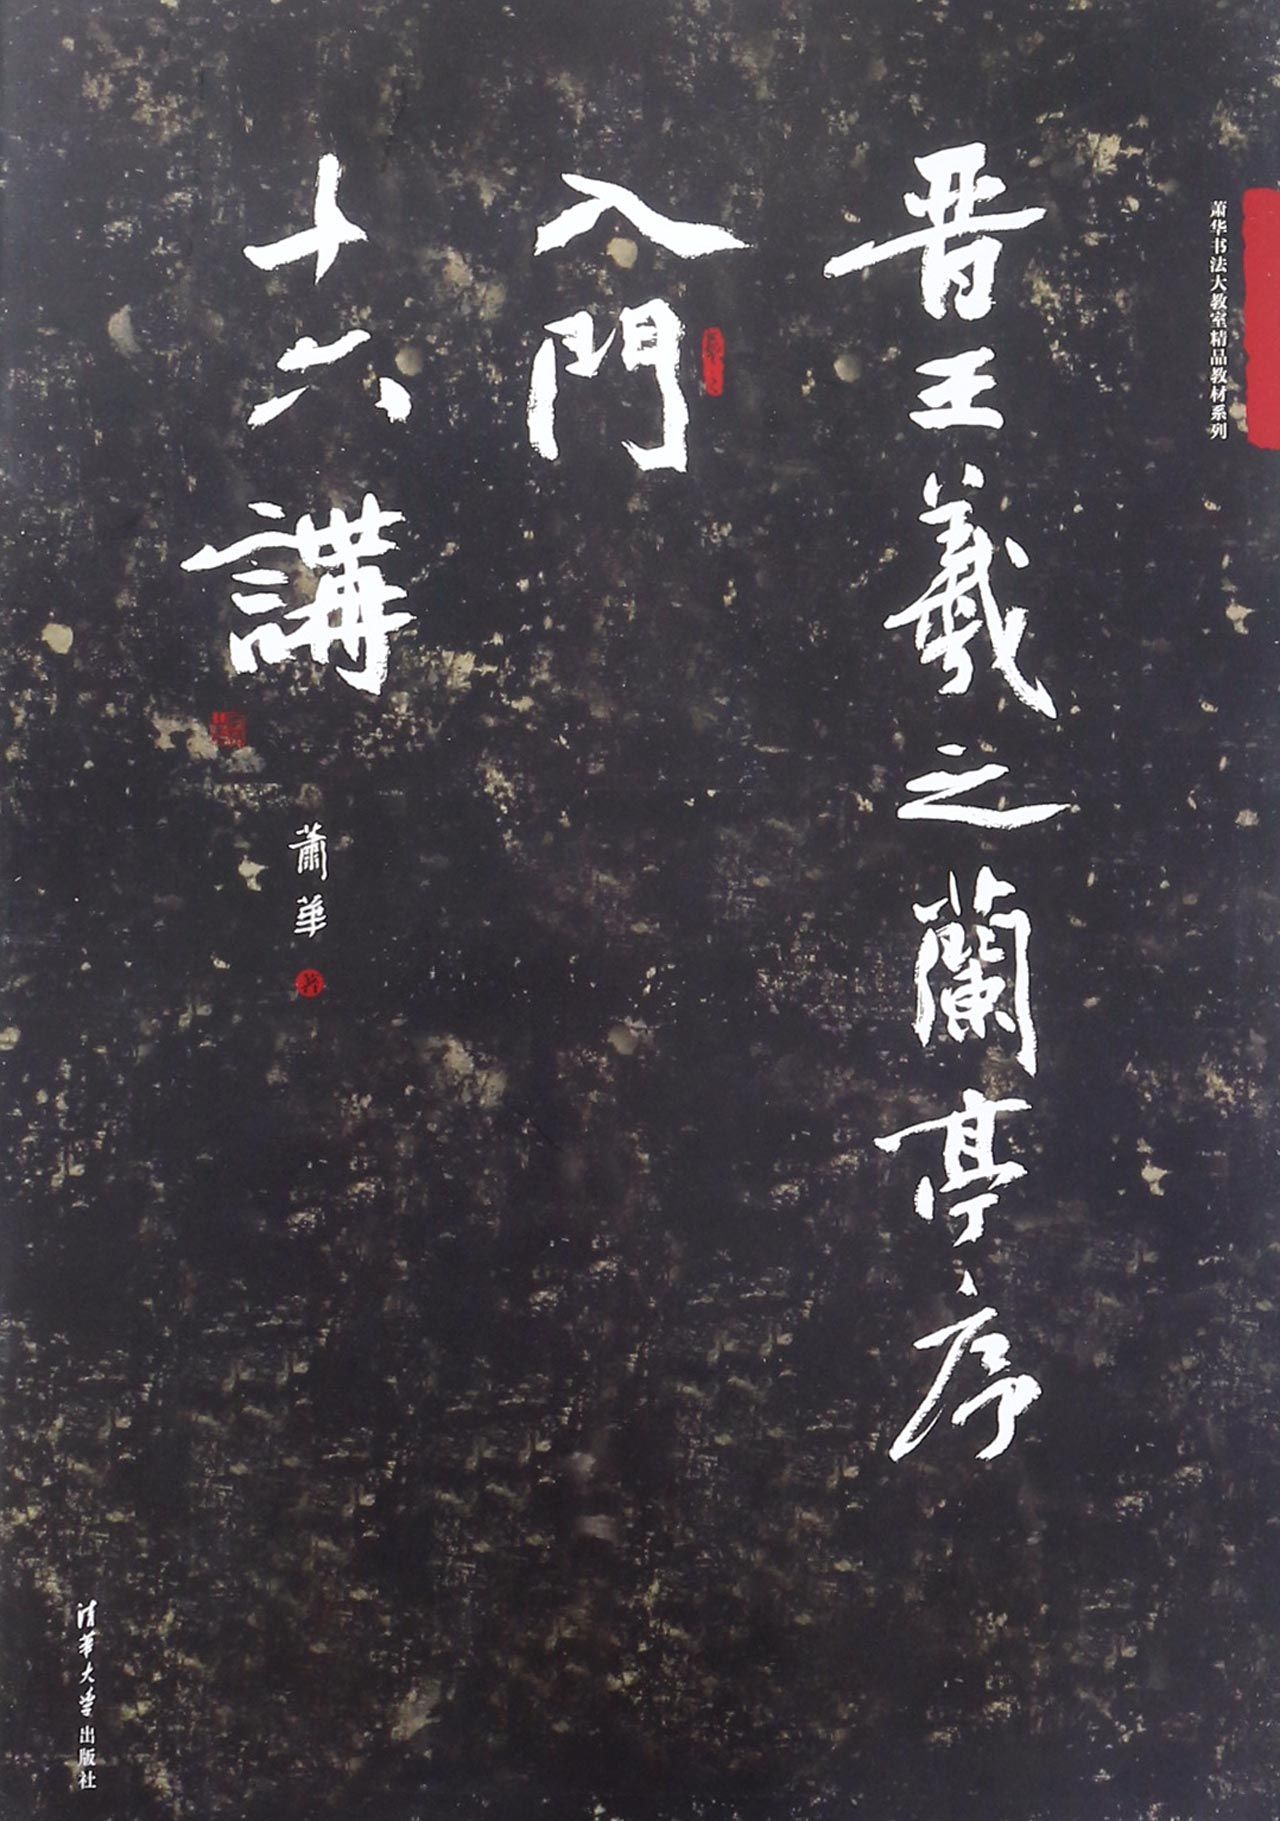 萧华书法大教室精品教材系列
晋王羲之蘭亭序
入門
十六講
蕭華 著
清華大学出版社